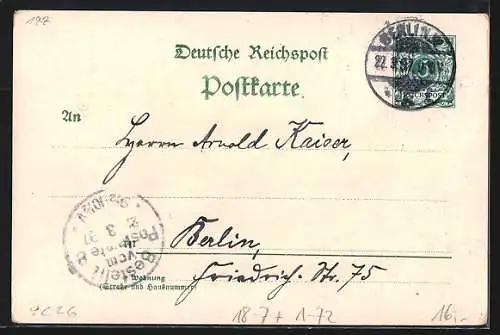 197
BERLIN
22.3.97
REICHSPOST
Deutsche Reichspost
Postkarte.
An
Herrn Arnold Kaiser,
Bestellt
vom
Postamte
3 97
in
Berlin,
Friedrich-Str. 75
Wohnung
(Straße und Hausnummer)
9C26
18-7+1-72
16,-